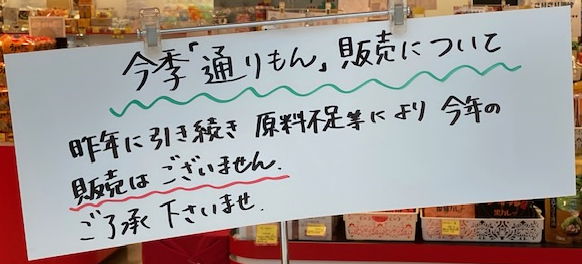 今季「通りもん」販売について
昨年に引き続き 原料不足等により 今年の
販売は ございません.
ご了承 下さいませ.